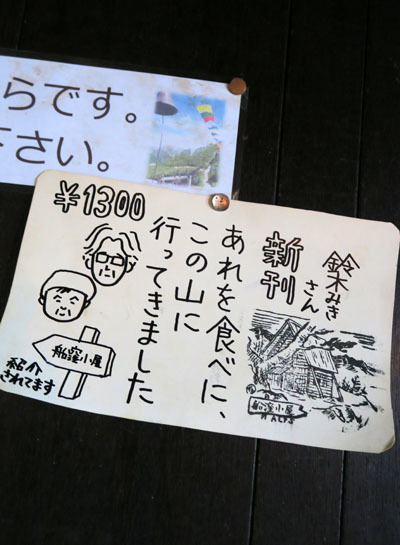 らです。
下さい。
鈴木みき
さん
新刊
あれを食べに、
この山に
行ってきました
¥1300
船窪小屋
紹介
されてます
船窪小屋